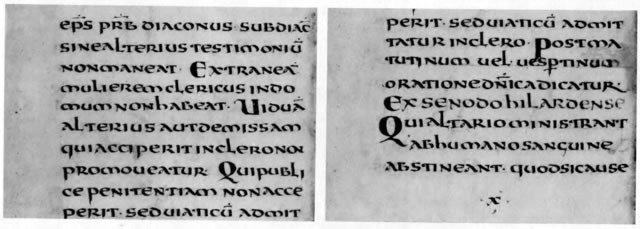 ep̅s prb̅ diaconus · subdiac̅
sinealteriustestimoniū
nonmaneat · Extraneā
mulieremclericusindo
mumnonhabeat · Uiduā
alteriusautdemissam
quiacciperitincleronon
promoueatur · Quipubli
cepenitentiamnonacce
perit · seduiaticū admit
perit · seduiaticū admit
tatur inclero · Postma
tutinum uel uesptinum
orationednīcadicatur
Exsenodohilardense
Quialtarioministrant
abhumanosanguine
abstineant · quodsicause
x